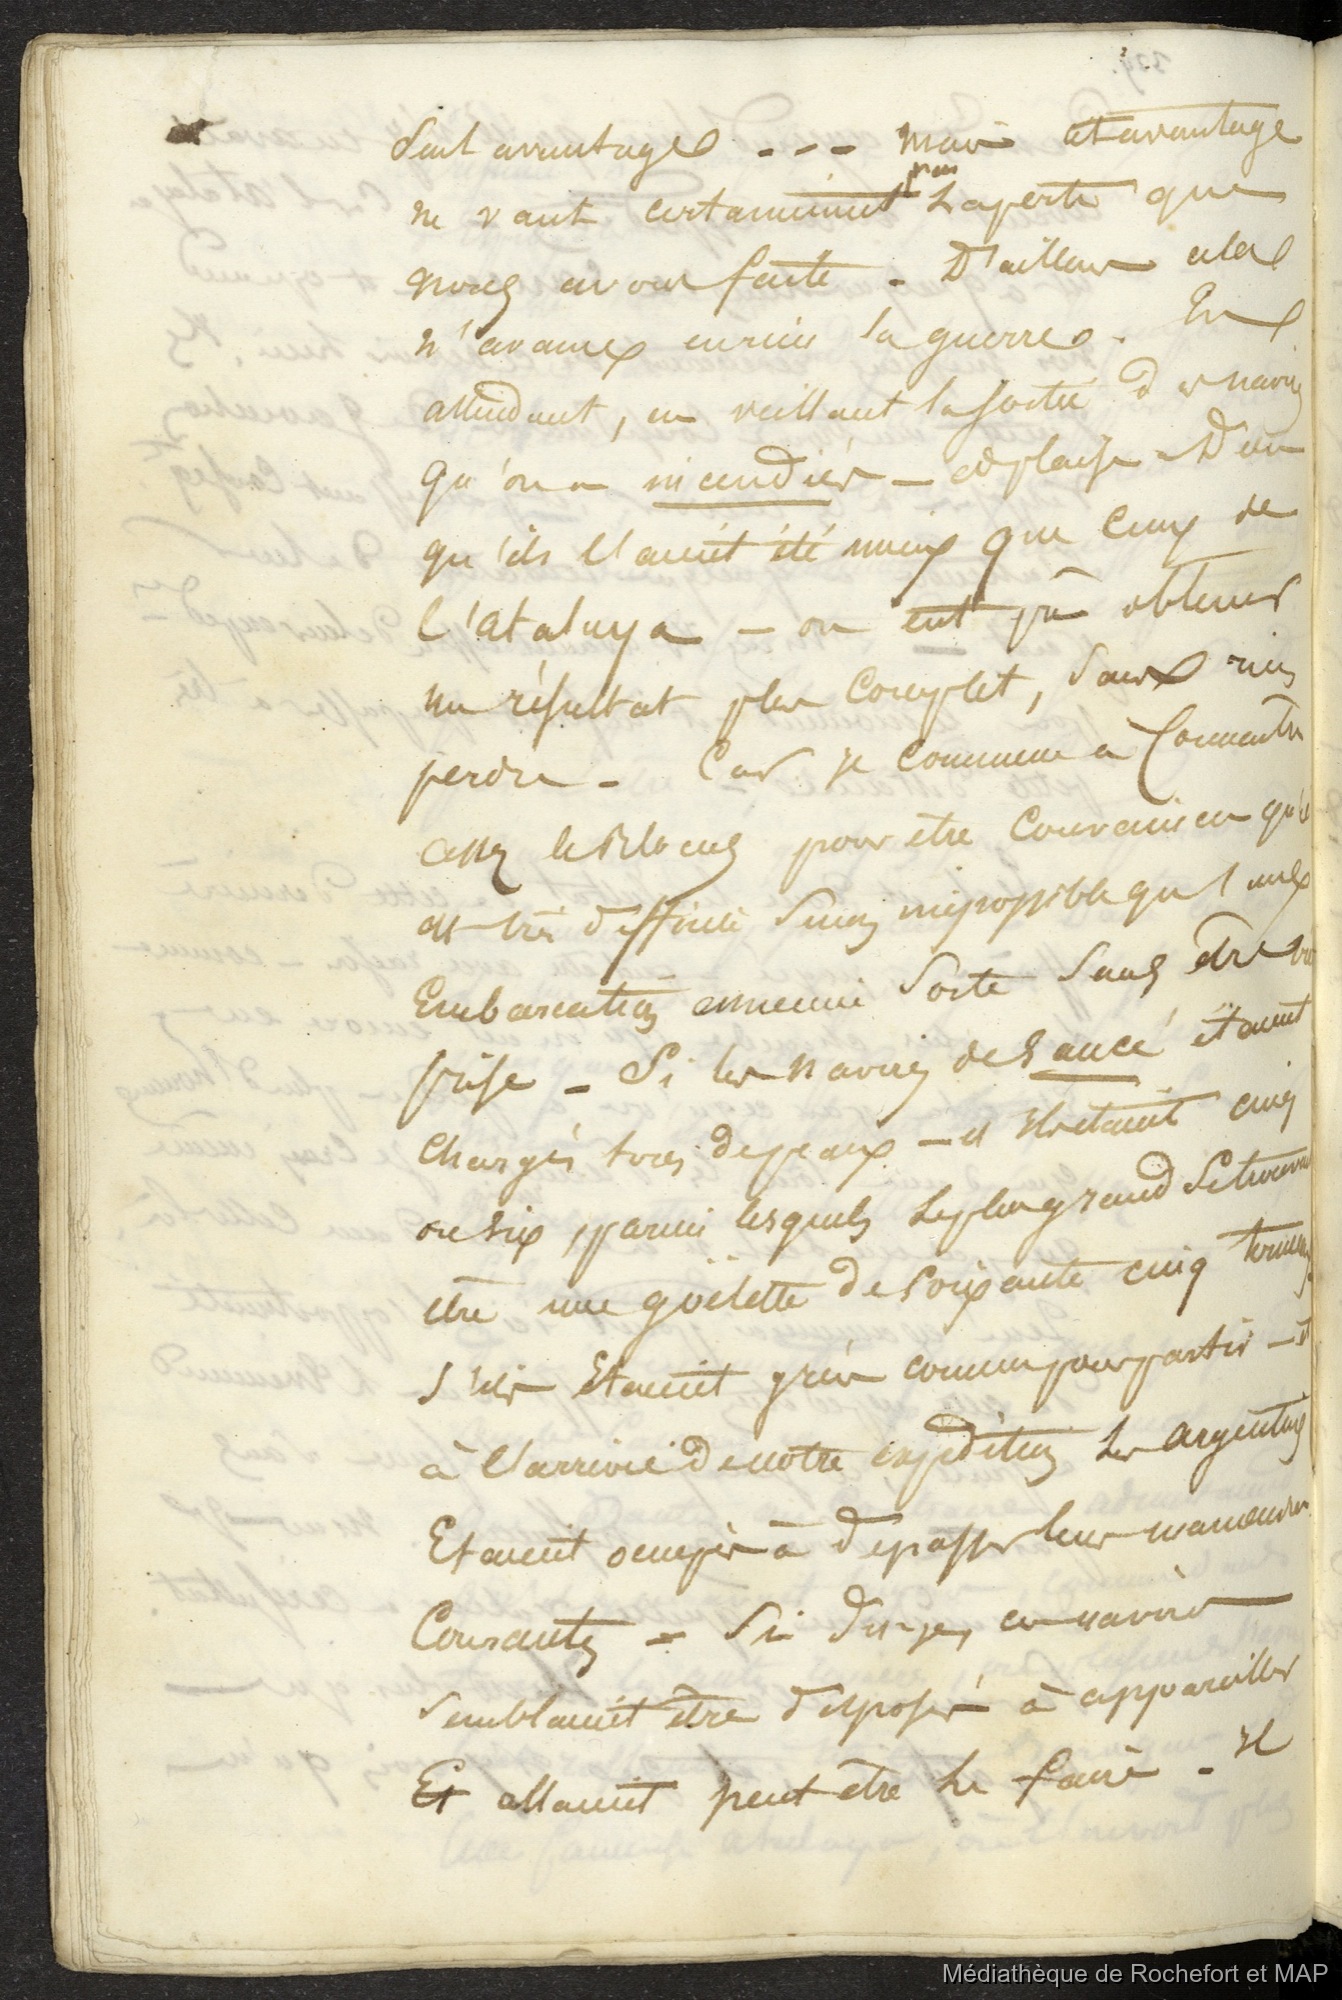 Seul avantage --- mais cet avantage
ne vaut certainement pas La perte que
nous avons faite - D'ailleurs cela
n'avance en rien la guerre. En
attendant, en veillant la sortie des navires
qu'on a incendiés - et plaise à Dieu
qu'ils l'aient été mieux que ceux de
l'atalaya - on eut pû obtenir
un résultat plus complet, sans rien
perdre - Car je commence à Connaitre
assez le Blocus pour être Convaincu qu'il
est très difficile sinon impossible qu'une
Embarcation ennemie Sorte sans être
prise - Si les navires de Saucé étaient
chargés tous de peaux - et ils étaient cinq
ou six, parmi lesquels Le plus grand Se trouvait
être une goëlette de soixante cinq tonneaux,
s'ils Etaient gréés comme pour partir - et
à l'arrivée de notre expédition Les argentins
Etaient occupés à dépasser leurs manœuvres
Courantes - Si dis-je, ces navires
Semblaient être disposés à appareiller
Et allaient peut être Le faire - Il
Médiathèque de Rochefort et MAP